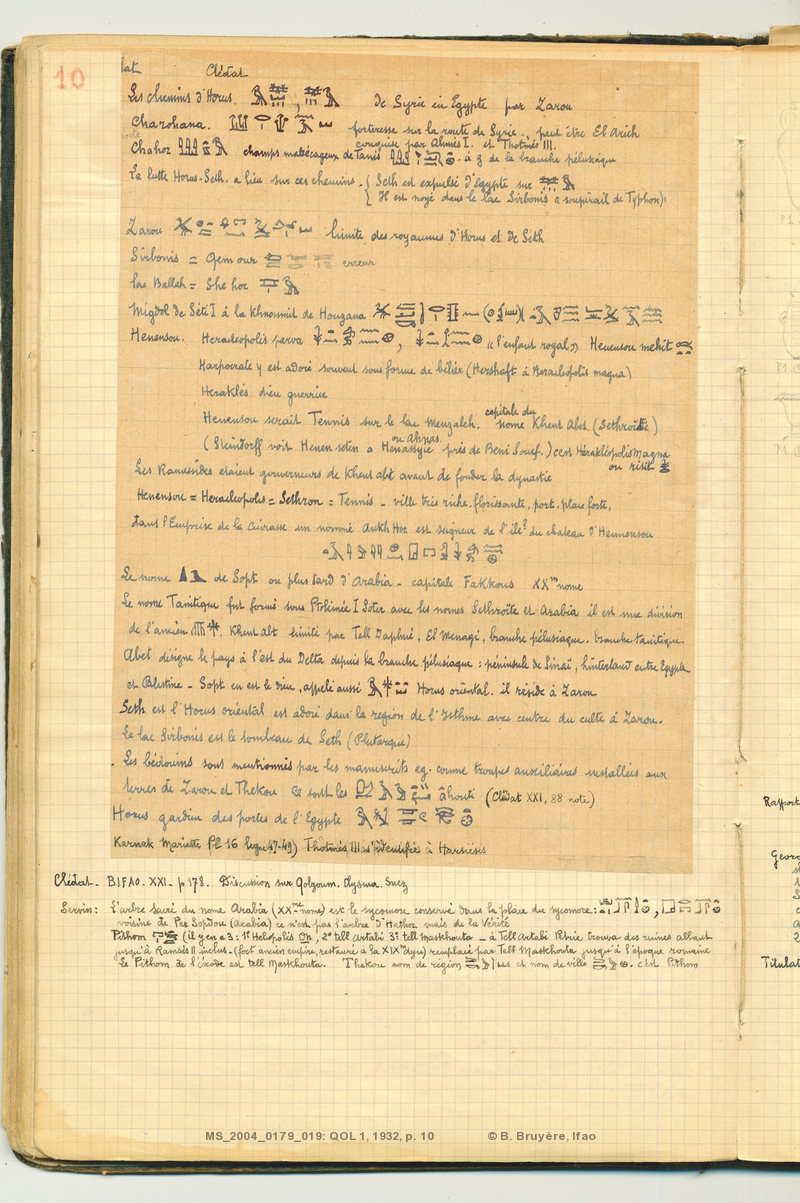 10
Clédat
Les chemins d'Horus. , de Syrie en Egypte par Zarou
Charohana. forteresse sur la route de Syrie. peut être El Arich
conquise par Ahmès I. et Thotmès III.
Chahor champs marécageux de Tanis à g de la branche pélusiaque
La lutte Horus-Seth. a lieu sur ces chemins. { Seth est expulsé d'Egypte sur
{ Il est noyé dans le lac Sirbonis (soupirail de Typhon).
Zarou limite des royaumes d'Horus et de Seth
Sirbonis = Qem our erreur
lac Ballah = She hor
Migdol de Séti I à la Khnoumit de Houzana
Henensou. Heracleopolis parva , "l'enfant royal" Henensou mehit
Harpocrate y est adoré souvent sous forme de bélier (Hershaft à Heracleopolis magna)
Heraklès dieu guerrier
Henensou serait Tennis sur le lac Menzaleh. capitale du nome Khent Abt. (Sethroïte)
(Steindorff voit Henen seten à Henassyie ou Ahnas. près de Beni Souef.) c'est Hérakléopolis Magna
ou risit
Les Ramessides étaient gouverneurs de Khent abt avant de fonder la dynastie
Henensou = Heracleopolis = Sethron = Tennis - ville très riche, florissante, port, place forte,
dans l'Emprise de la Cuirasse un nommé Ankh Hor est seigneur de l'île? du chateau d'Hennensou
Le nome de Sopt ou plus tard d'Arabia - capitale Fakkous XXme nome
Le nome Tanitique fut formé sous Ptolémée I Soter avec les nomes Sethroïte et Arabia il est une division
de l'ancien Khent Abt limité par Tell Daphné, El Menagi, branche pélusiaque. branche tanitique
Abet désigne le pays à l'est du Delta depuis la branche pélusiaque : péninsule de Sinaï, hinterland entre Egypte
et Palestine - Sopt en est le dieu, appelé aussi Horus oriental. il réside à Zarou
Seth est l'Horus oriental est adoré dans la region de l'Isthme avec centre du culte à Zarou.
Le lac Sirbonis est le tombeau de Seth (Plutarque)
Les bédouins sont mentionnés par les manuscrits eg. comme troupes auxiliaires installées aux
terres de Zarou et Thekou ce sont les âhouti (Clédat XXI, 88 note)
Horus gardien des portes de l'Egypte
Karnak Mariette Pl 16 ligne 47-49) Thotmès III as identifié à Harsiésis
Clédat - BIFAO. XXI - p 178. Discussion sur Qolzoum. Clysma. Suez
Servin : L'arbre sacré du nome Arabia (XXme nome) est le sycomore conservé dans la place du sycomore : ,
voisine de Per Sopdou (Arabia) ce n'est pas l'arbre d'Hathor mais de la Vérité
Pithom (il y en a 3 : 1° Heliopolis On, 2° tell Artabi 3° tell Maskhouta - à Tell Artabi Petrie trouva des ruines allant
jusqu'à Ramsès II inclus - (fort ancien empire, restauré à la XIXme dyn) remplacé par Tell Maskhouta jusqu'à l'époque romaine
Le Pithom de l'éxode est tell Maskhouta. Thekou nom de région et nom de ville c'est Pithom
Rapport
Titulat
MS_2004_0179_019: QOL 1, 1932, p. 10 © B. Bruyère, Ifao